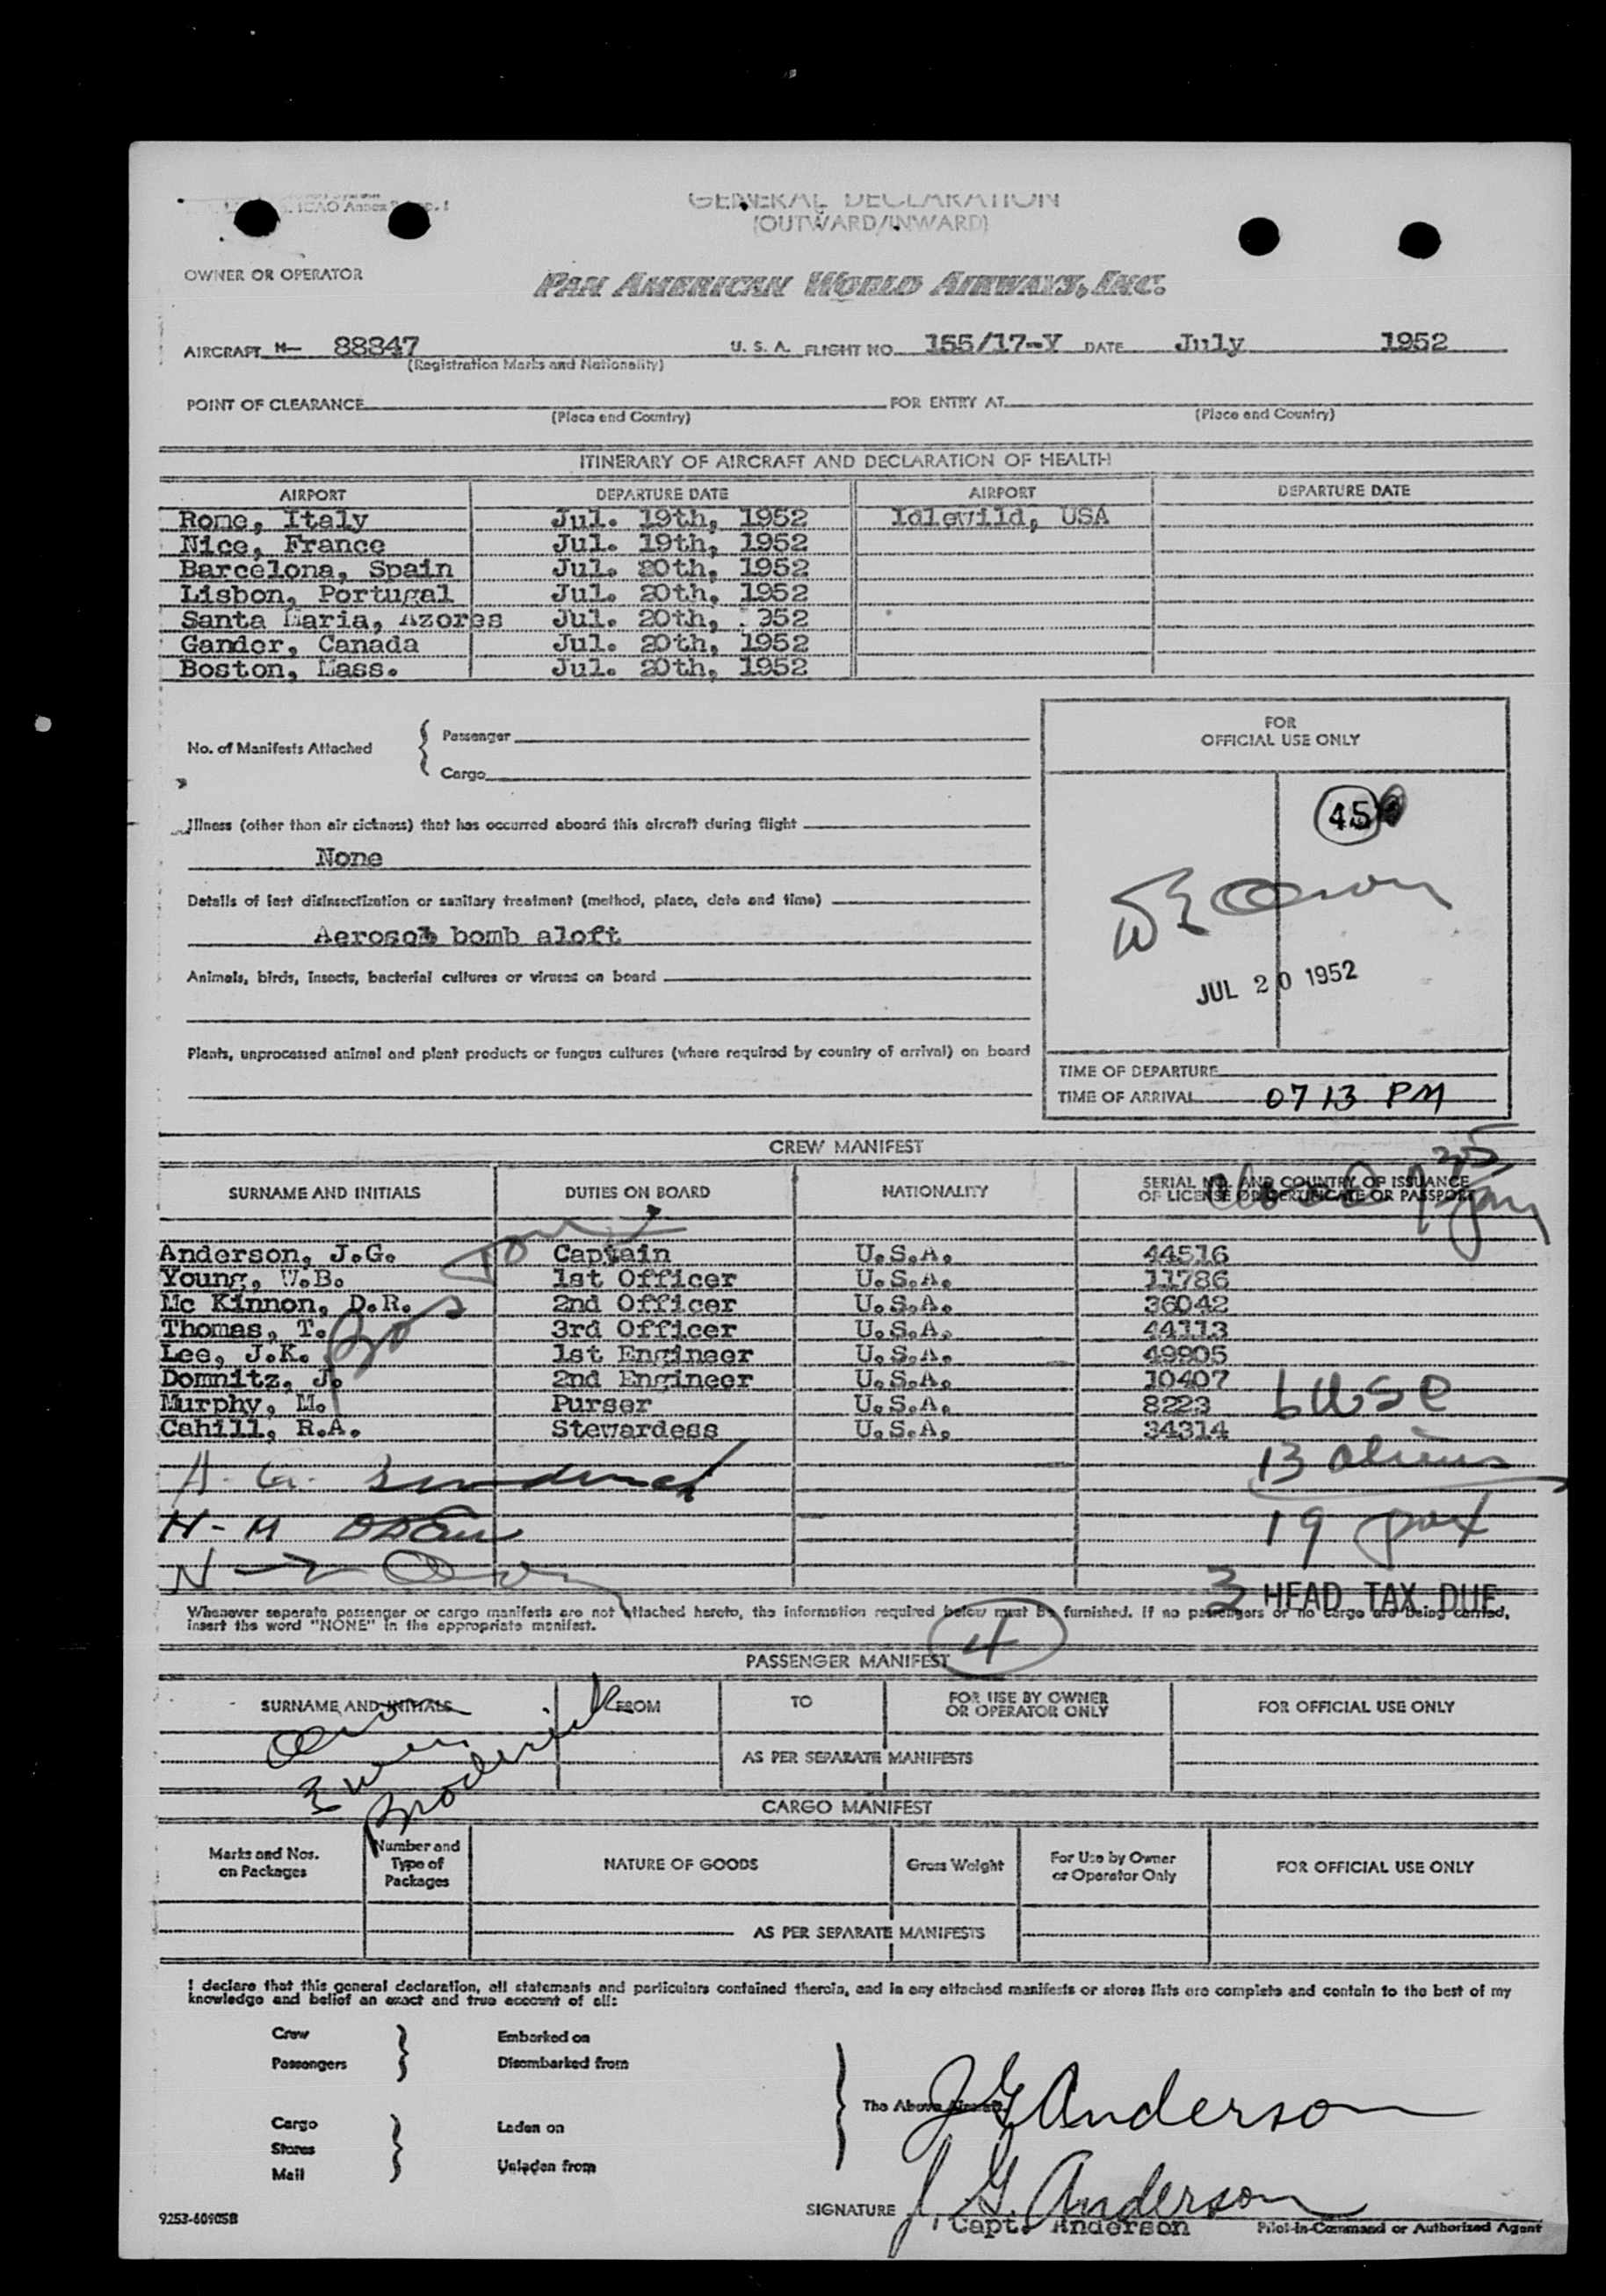 GENERAL DECLARATION
(OUTWARD/INWARD)
OWNER OR OPERATOR PAN AMERICAN WORLD AIRWAYS, INC.
AIRCRAFT N- 88847 U. S. A. FLIGHT NO. 155/17-Y DATE July 1952
(Registration Marks and Nationality)
POINT OF CLEARANCE FOR ENTRY AT
(Place and Country) (Place and Country)
ITINERARY OF AIRCRAFT AND DECLARATION OF HEALTH
AIRPORT DEPARTURE DATE AIRPORT DEPARTURE DATE
Rome, Italy Jul. 19th, 1952 Idlewild, USA
Nice, France Jul. 19th, 1952
Barcelona, Spain Jul. 20th, 1952
Lisbon, Portugal Jul. 20th, 1952
Santa Maria, Azores Jul. 20th, 952
Gander, Canada Jul. 20th, 1952
Boston, Mass. Jul. 20th, 1952
No. of Manifests Attached { Passenger
Cargo
FOR
OFFICIAL USE ONLY
45
Illness (other than air sickness) that has occurred aboard this aircraft during flight
None
Details of last disinsectization or sanitary treatment (method, place, date and time)
Aerosol bomb aloft
Animals, birds, insects, bacterial cultures or viruses on board
JUL 20 1952
Plants, unprocessed animal and plant products or fungus cultures (where required by country of arrival) on board
TIME OF DEPARTURE
TIME OF ARRIVAL 0713 PM
CREW MANIFEST
SURNAME AND INITIALS DUTIES ON BOARD NATIONALITY SERIAL NO. AND COUNTRY OF ISSUANCE
OF LICENSE OR CERTIFICATE OR PASSPORT
Anderson, J.G. Captain U.S.A. 44516
Young, W.B. 1st Officer U.S.A. 11786
Mc Kinnon, D.R. 2nd Officer U.S.A. 36042
Thomas, T. 3rd Officer U.S.A. 44113
Lee, J.K. 1st Engineer U.S.A. 49905
Domnitz, J. 2nd Engineer U.S.A. 10407
Murphy, M. Purser U.S.A. 8223
Cahill, R.A. Stewardess U.S.A. 34314
Bos
6 USC
13 aliens
19 pax
3 HEAD TAX DUE
Whenever separate passenger or cargo manifests are not attached hereto, the information required below must be furnished. If no passengers or no cargo are being carried,
insert the word "NONE" in the appropriate manifest.
4
PASSENGER MANIFEST
SURNAME AND INITIALS FROM TO FOR USE BY OWNER
OR OPERATOR ONLY FOR OFFICIAL USE ONLY
AS PER SEPARATE MANIFESTS
Broderick
CARGO MANIFEST
Marks and Nos.
on Packages Number and
Type of
Packages NATURE OF GOODS Gross Weight For Use by Owner
or Operator Only FOR OFFICIAL USE ONLY
AS PER SEPARATE MANIFESTS
I declare that this general declaration, all statements and particulars contained therein, and in any attached manifests or stores lists are complete and contain to the best of my
knowledge and belief an exact and true account of all:
Crew Embarked on
Passengers Disembarked from
The Above Aircraft
J G Anderson
Cargo Laden on
Stores
Mail Unladen from
SIGNATURE J. G. Anderson
Capt. Anderson Pilot-in-Command or Authorized Agent
9253-60905B